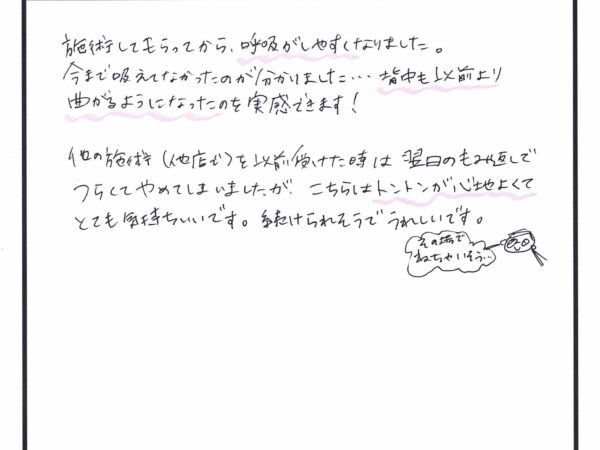 施術してもらってから、呼吸がしやすくなりました。
今まで吸えてなかったのが分かりました… 背中も以前より
曲がるようになったのを実感できます!
他の施術(他店で)を以前受けた時は 翌日のもみ返しで
つらくてやめてしまいましたが、こちらはトントンが心地よくて
とても気持ちいいです。続けられそうでうれしいです。
その場で
ねちゃいそう…